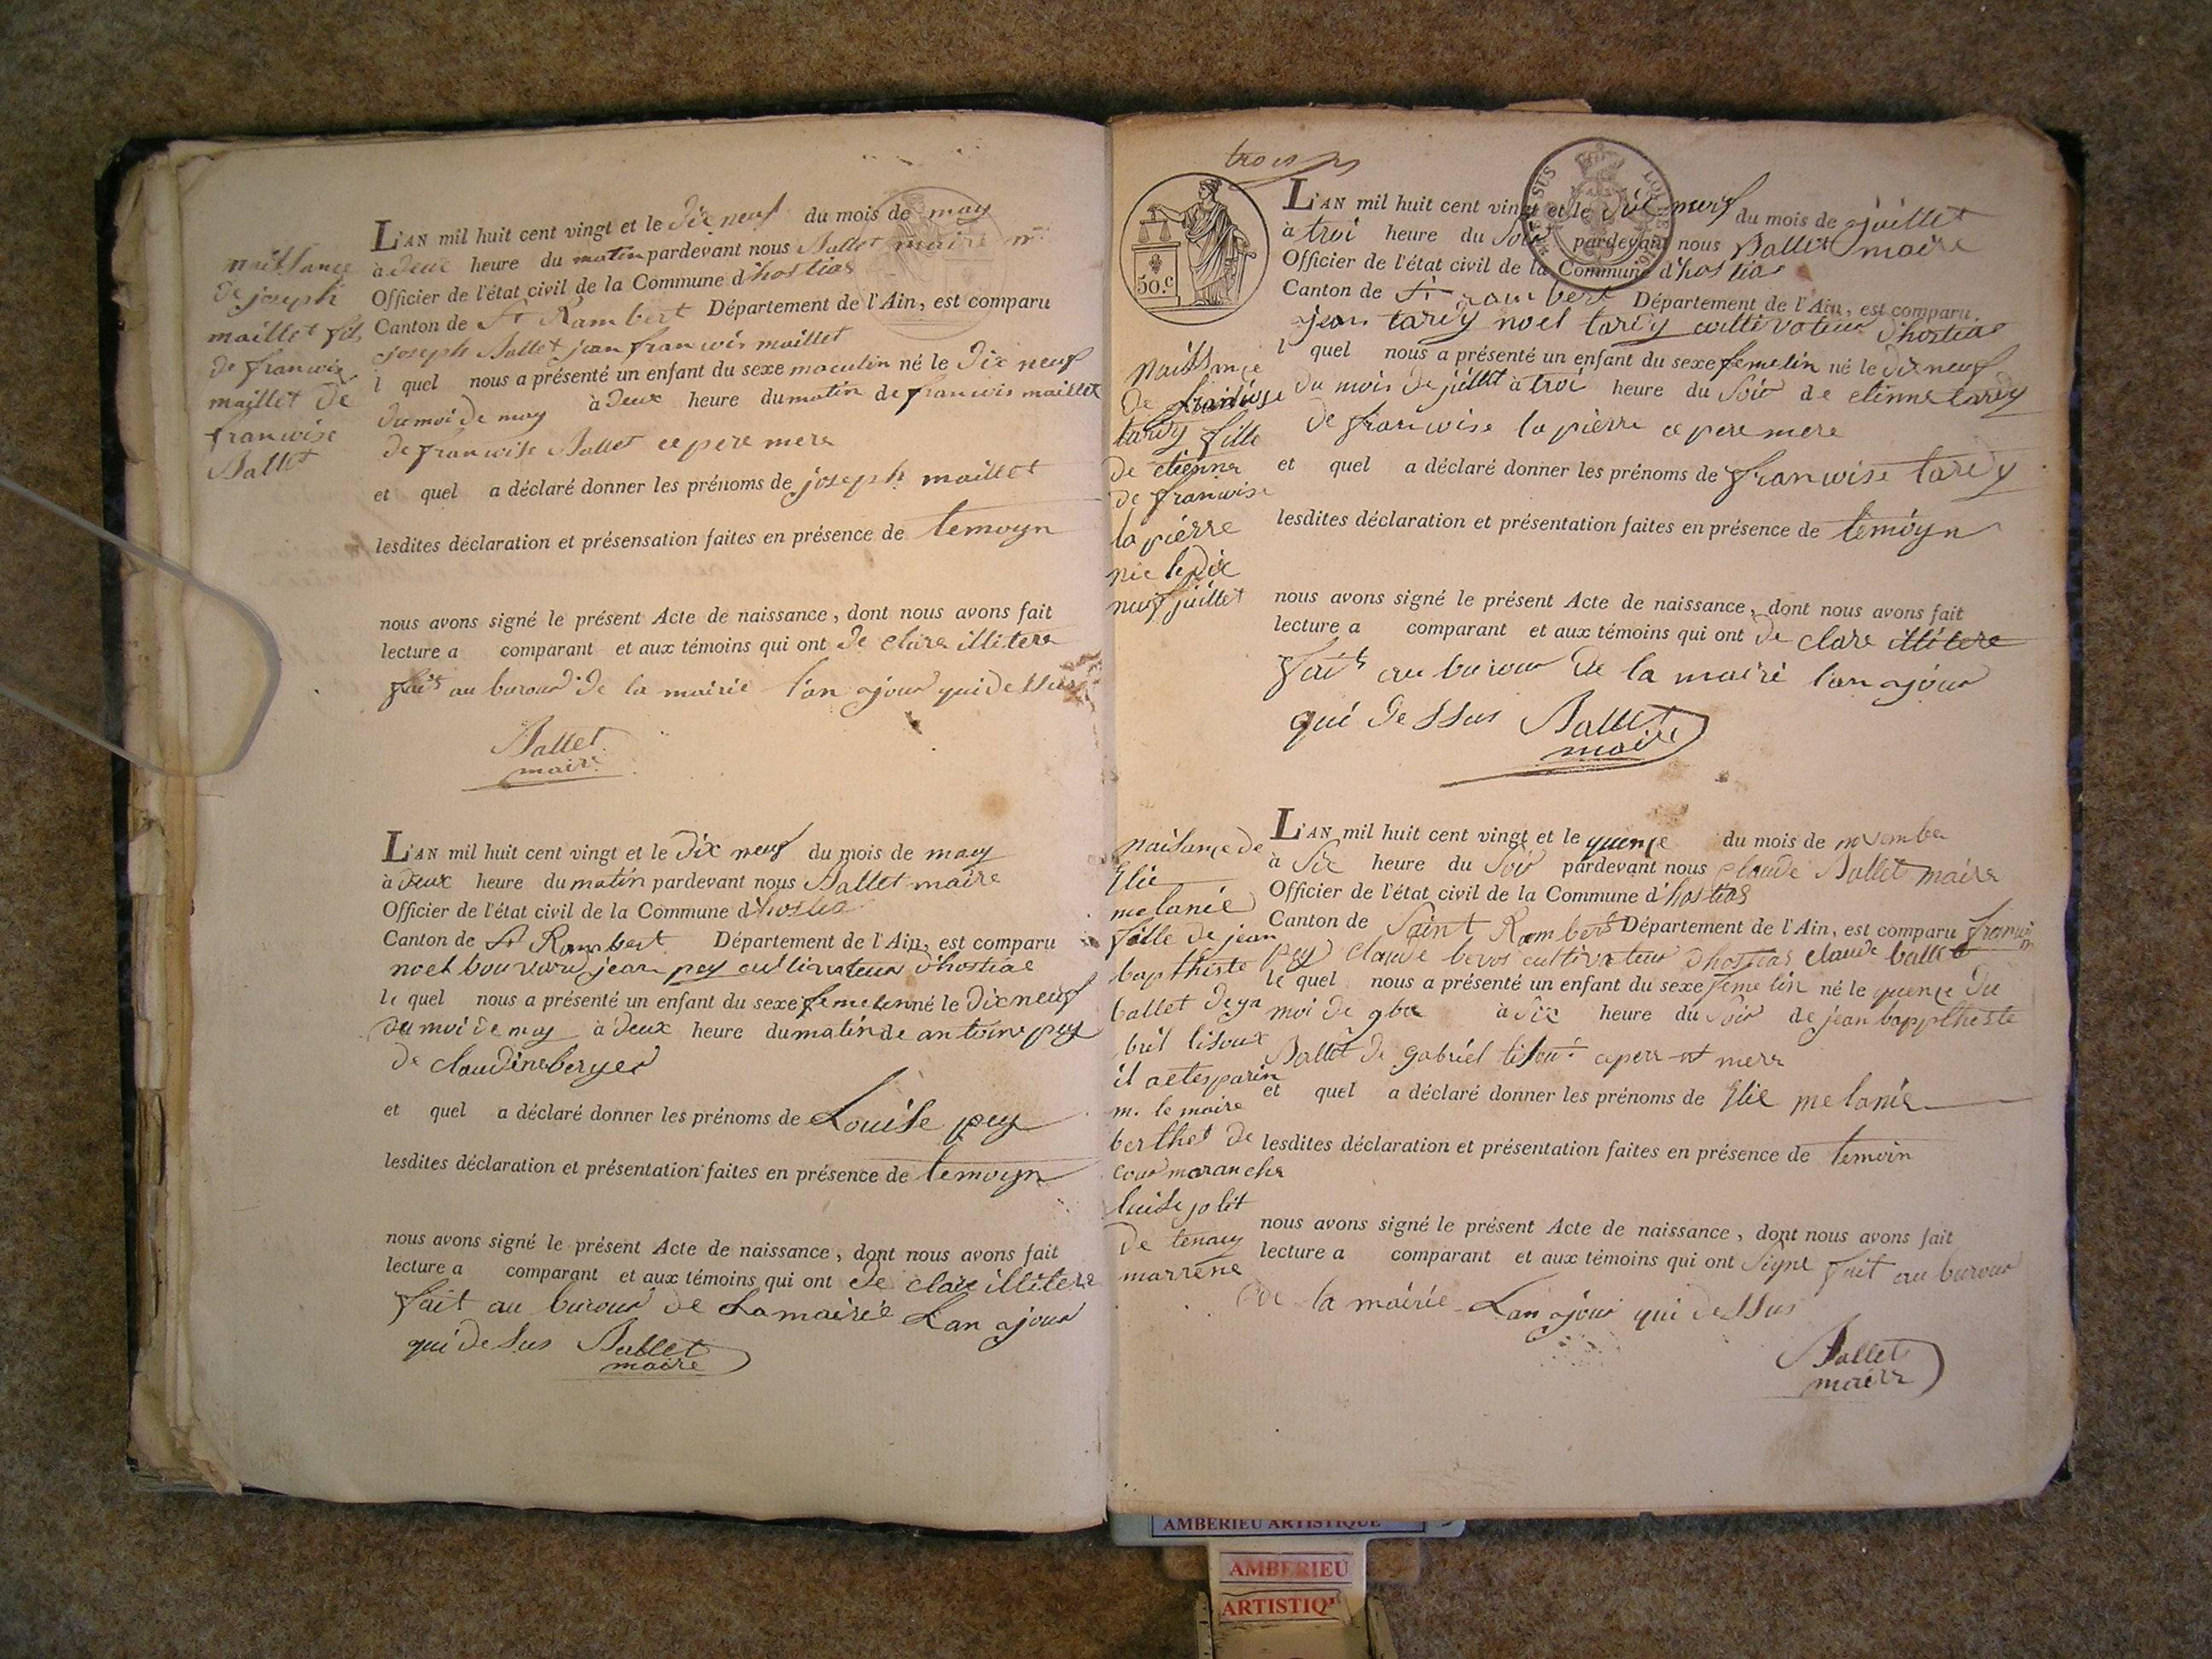 naissance
de joseph
maillet fils
de francois
maillet de
francoise
Ballet
L'AN mil huit cent vingt et le dix neuf du mois de may
à deux heure du matin pardevant nous Ballet maire
Officier de l'état civil de la Commune d'hostias
Canton de St Rambert Département de l'Ain, est comparu
joseph Ballet jean francois maillet
l quel nous a présenté un enfant du sexe maculin né le dix neuf
du moi de may à deux heure du matin de francois maillet
de francoise Ballet ce pere mere
et quel a déclaré donner les prénoms de joseph maillet
lesdites déclaration et présensation faites en présence de temoyn
nous avons signé le présent Acte de naissance, dont nous avons fait
lecture a comparant et aux témoins qui ont de clare illitere
fait au burour de la mairie l'an ajour qui dessus
Ballet
maire
L'AN mil huit cent vingt et le dix neuf du mois de may
à deux heure du matin pardevant nous Ballet maire
Officier de l'état civil de la Commune d'hostia
Canton de St Rambert Département de l'Ain, est comparu
noel bouvard jean pey cultivateur d'hostiae
le quel nous a présenté un enfant du sexe femelin né le dix neuf
du moi de may à deux heure du matin de antoine pey
de claudine berger
et quel a déclaré donner les prénoms de Louise pey
lesdites déclaration et présentation faites en présence de temoyn
nous avons signé le présent Acte de naissance, dont nous avons fait
lecture a comparant et aux témoins qui ont de clare illitere
fait au burour de La mairie Lan ajour
qui desus Ballet
maire
trois
50.c
L'AN mil huit cent vingt et le dix neuf du mois de juillet
à troi heure du soir pardevant nous Ballet maire
Officier de l'état civil de la Commune d'hostias
Canton de St rambert Département de l'Ain, est comparu
jean tardy noel tardy cultivateur d'hostiae
l quel nous a présenté un enfant du sexe femelin né le dix neuf
du mois de juillet à troi heure du soir de etienne tardy
de francoise la pierre ce pere mere
et quel a déclaré donner les prénoms de francoise tardy
lesdites déclaration et présentation faites en présence de temoyn
nous avons signé le présent Acte de naissance, dont nous avons fait
lecture a comparant et aux témoins qui ont de clare illitere
fait au burour de la mairi l'an ajour
qui dessus Ballet
maire
naissance
de francoise
tardy fille
de etienne
de francoise
la pierre
née le dix
neuf juillet
L'AN mil huit cent vingt et le quenze du mois de novembre
à six heure du soir pardevant nous claude Ballet maire
Officier de l'état civil de la Commune d'hostias
Canton de Saint Rambert Département de l'Ain, est comparu francois
pey claude bevos cultivateur d'hostias claude ballet
le quel nous a présenté un enfant du sexe femelin né le quenze du
moi de 9bre à six heure du soir de jean bapptheste
Ballet de gabriel lisou ce pere et mere
et quel a déclaré donner les prénoms de Elie melanie
lesdites déclaration et présentation faites en présence de temoin
nous avons signé le présent Acte de naissance, dont nous avons fait
lecture a comparant et aux témoins qui ont signe fait au burour
de la mairie Lan ajour qui dessus
Ballet
maire
naisance de
Elie
melanie
fille de jean
bapthiste
ballet de ga
briel lisoux
il a etes parin
m. le maire
berthet de
cour maranche
luise jolit
de tenay
marrene
AMBERIEU ARTISTIQUE
AMBERIEU
ARTISTIQ